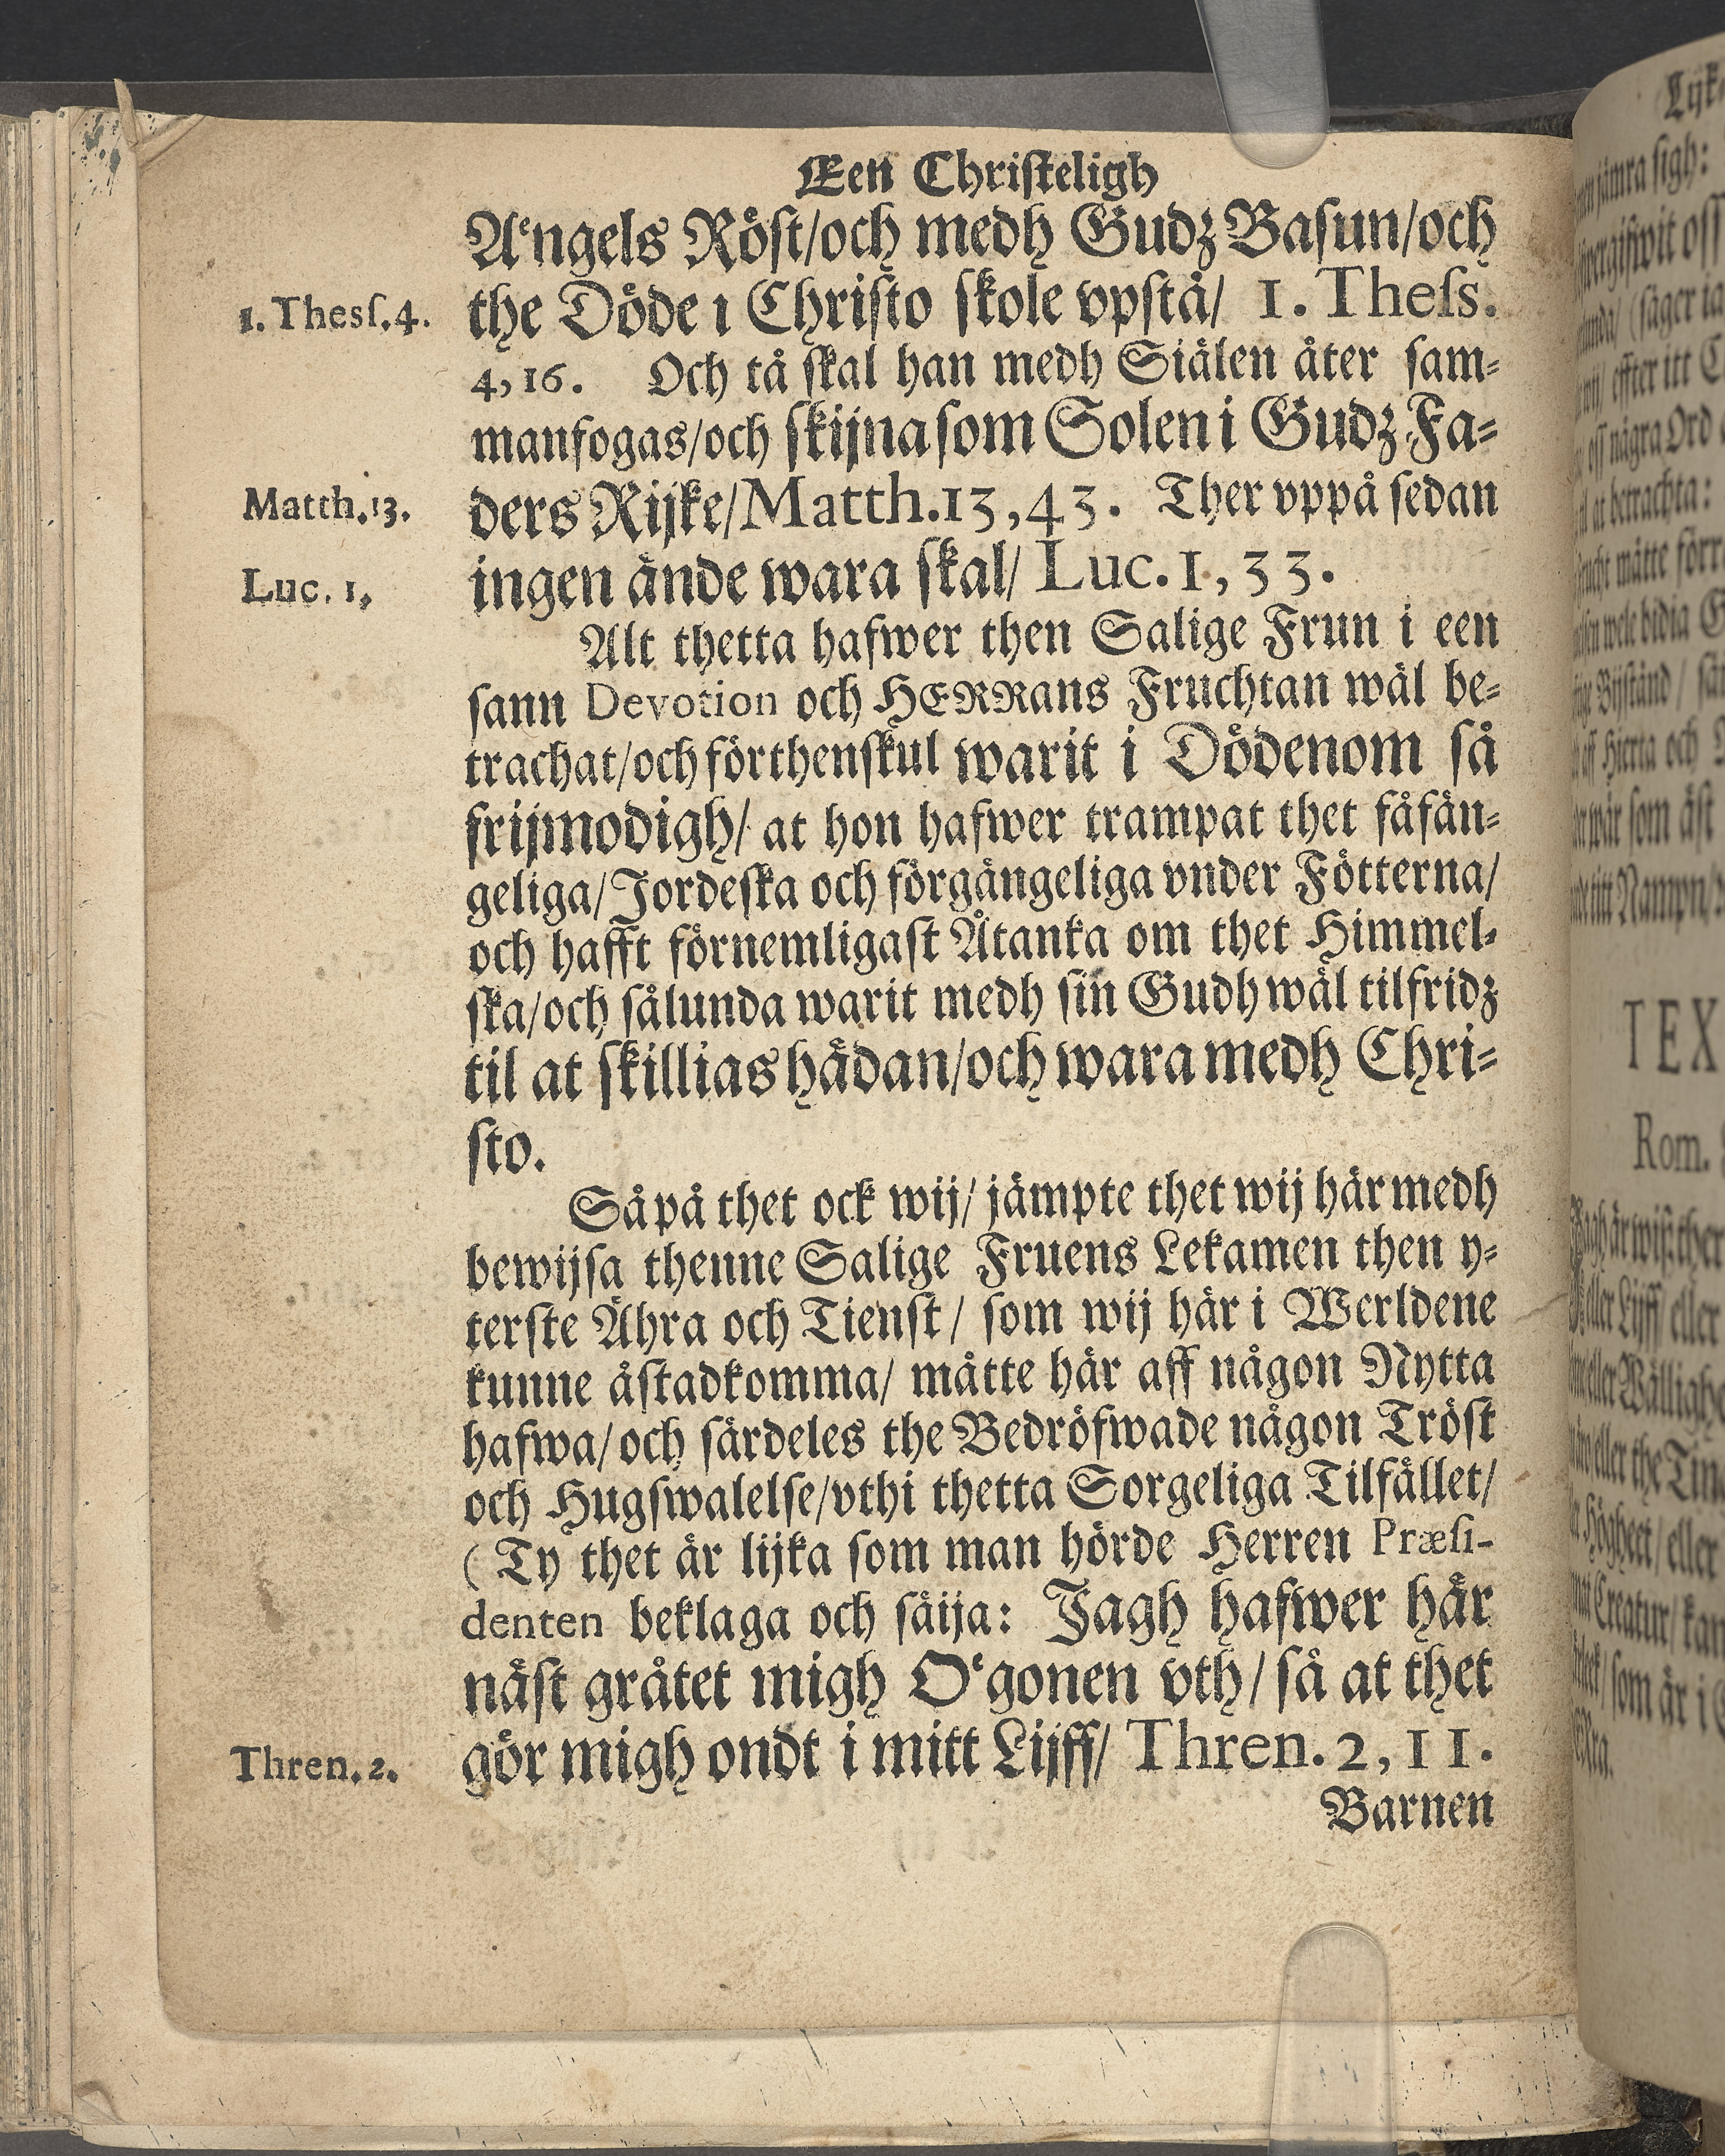 Een Christeligh
Aͤngels Röst/och medh Gudz Basun/och
the Döde i Christo skole vpstå/ 1. Thess.
1. Thess. 4.
4, 16. Och tå skal han medh Siälen åter sam-
manfogas/och skijna som Solen i Gudz Fa-
ders Rijke/Matth. 13, 43. Ther vppå sedan
Matth. 13.
ingen ände wara skal/ Luc. 1, 33.
Luc. 1.
Alt thetta hafwer then Salige Frun i een
sann Devotion och HERRans Fruchtan wäl be-
trachat/och förthenskul warit i Dödenom så
frijmodigh/ at hon hafwer trampat thet fåfän-
geliga/Jordeska och förgängeliga vnder Fötterna/
och hafft förnemligast Åtanka om thet Himmel-
ska/och sålunda warit medh sin Gudh wäl tilfridz
til at skillias hädan/och wara medh Chri-
sto.
Så på thet ock wij/ jämpte thet wij här medh
bewijsa thenne Salige Fruens Lekamen then y-
terste Ähra och Tienst/ som wij här i Werldene
kunne åstadkomma/ måtte här aff någon Nytta
hafwa/och särdeles the Bedröfwade någon Tröst
och Hugswalelse/vthi thetta Sorgeliga Tilfället/
(Ty thet är lijka som man hörde Herren Præsi-
denten beklaga och säija: Jagh hafwer här
näst gråtet migh Oͤgonen vth/ så at thet
gör migh ondt i mitt Lijff/ Thren. 2, 11.
Thren. 2.
Barnen
TEX
Rom.